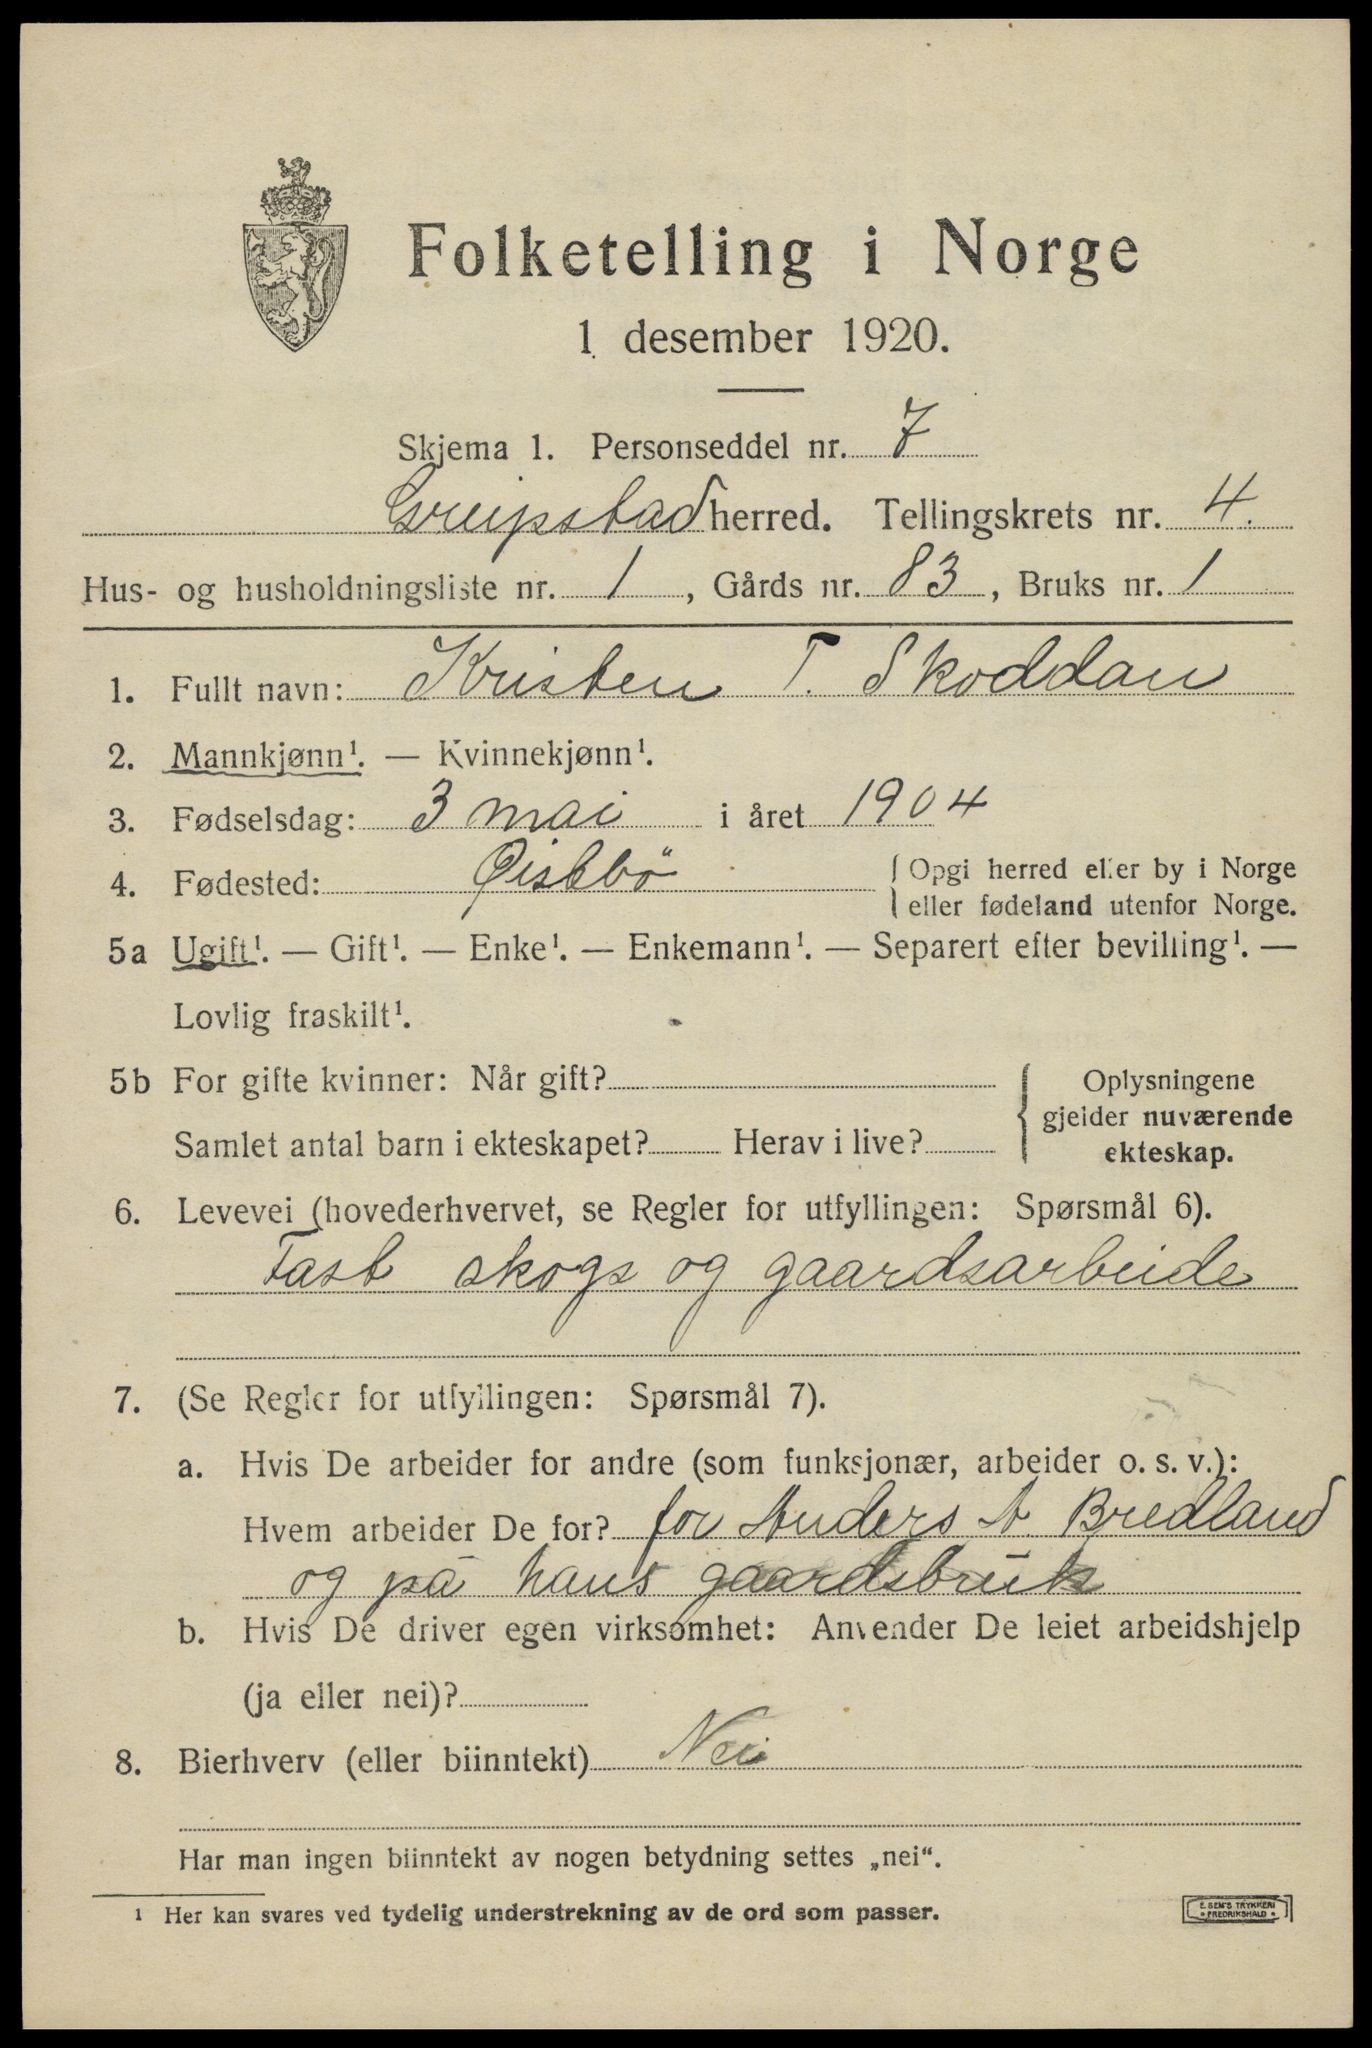 Folketelling i Norge
1 desember 1920.
Skjema 1. Personseddel nr. 7
Greipstad herred. Tellingskrets nr. 4.
Hus- og husholdningsliste nr. 1, Gårds nr. 83, Bruks nr. 1
1. Fullt navn: Kristen T. Skoddan
2. Mannkjønn¹. — Kvinnekjønn¹.
3. Fødselsdag: 3 mai i året 1904
4. Fødested: Øislebö { Opgi herred eller by i Norge
eller fødeland utenfor Norge.
5a Ugift¹. — Gift¹. — Enke¹. — Enkemann¹. — Separert efter bevilling¹. —
Lovlig fraskilt¹.
5b For gifte kvinner: Når gift? { Oplysningene
gjelder nuværende
Samlet antal barn i ekteskapet? Herav i live? ekteskap.
6. Levevei (hovederhvervet, se Regler for utfyllingen: Spørsmål 6).
Fast skogs og gaardsarbeide
7. (Se Regler for utfyllingen: Spørsmål 7).
a. Hvis De arbeider for andre (som funksjonær, arbeider o. s. v.):
Hvem arbeider De for? for Anders A. Bredland
og på hans gaardsbruk
b. Hvis De driver egen virksomhet: Anvender De leiet arbeidshjelp
(ja eller nei)?
8. Bierhverv (eller biinntekt) Nei
Har man ingen biinntekt av nogen betydning settes „nei“.
¹ Her kan svares ved tydelig understrekning av de ord som passer.
E. SEM'S TRYKKERI
FREDRIKSHALD